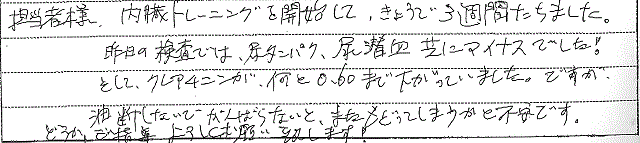 担当者様、内臓トレーニングを開始して、きょうで3週間たちました。
昨日の検査では、尿タンパク、尿潜血 共にマイナスでした!
そして、クレアチニンが、何と0.60まで下がっていました。ですが、
油断しないでがんばらないと、またもどってしまうかと不安です。
どうか、ご指導 よろしくお願い致します!